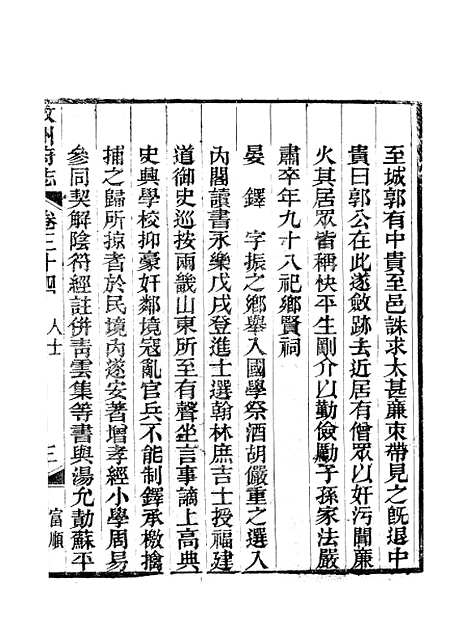 至城郭有中貴至邑誅求太甚廉束帶見之旣退中
貴曰郭公在此遂斂跡去近居有僧眾以奸污聞廉
火其居眾皆稱快平生剛介以勤儉勵子孫家法嚴
肅卒年九十八祀鄉賢祠
晏鐸字振之鄉舉入國學祭酒胡儼重之選入
內閣讀書永樂戊戌登進士選翰林庶吉士授福建
道御史巡按兩畿山東所至有聲坐言事謫上高典
史興學校抑豪奸鄰境寇亂官兵不能制鐸承檄擒
捕之歸所掠者於民境內遂安著增孝經小學周易
參同契解陰符經註併青雲集等書與湯允勣蘇平
敘州府志 卷三十四 人士 三 富順